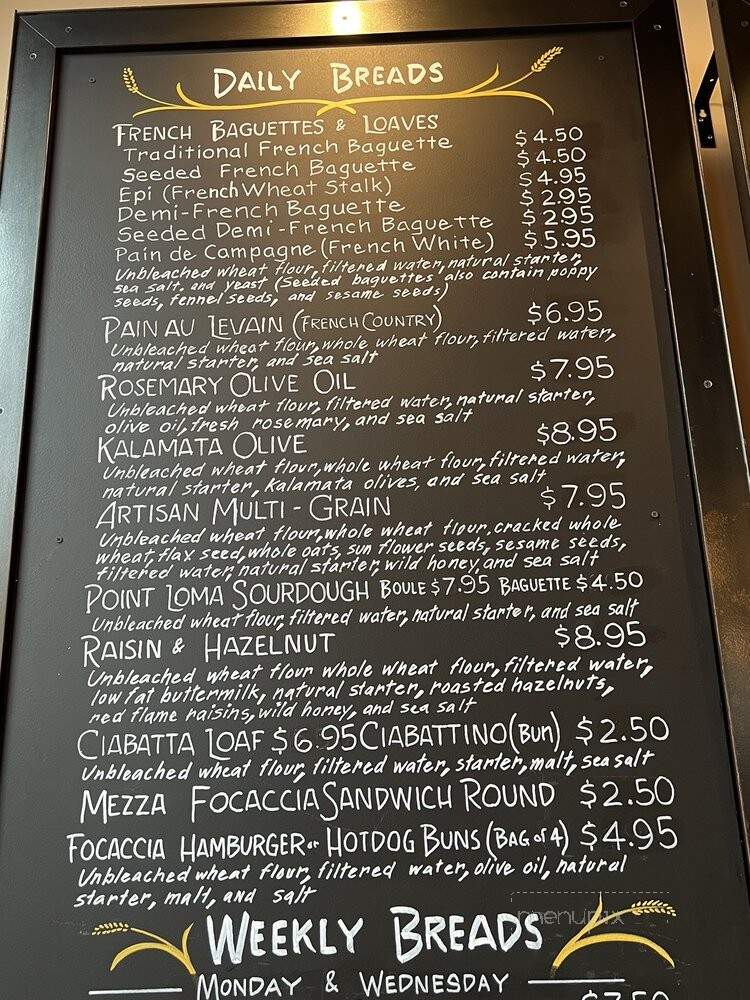 DAILY BREADS
FRENCH BAGUETTES & LOAVES
Traditional French Baguette $4.50
Seeded French Baguette $4.50
Epi (French Wheat Stalk) $4.95
Demi-French Baguette $2.95
Seeded Demi-French Baguette $2.95
Pain de Campagne (French White) $5.95
Unbleached wheat flour, filtered water, natural starter,
sea salt, and yeast (Seeded baguettes also contain poppy
seeds, fennel seeds, and sesame seeds)
PAIN AU LEVAIN (FRENCH COUNTRY) $6.95
Unbleached wheat flour, whole wheat flour, filtered water,
natural starter, and sea salt
ROSEMARY OLIVE OIL $7.95
Unbleached wheat flour, filtered water, natural starter,
olive oil, fresh rosemary, and sea salt
KALAMATA OLIVE $8.95
Unbleached wheat flour, whole wheat flour, filtered water,
natural starter, kalamata olives, and sea salt
ARTISAN MULTI-GRAIN $7.95
Unbleached wheat flour, whole wheat flour, cracked whole
wheat, flax seed, whole oats, sun flower seeds, sesame seeds,
filtered water, natural starter, wild honey, and sea salt
POINT LOMA SOURDOUGH BOULE $7.95 BAGUETTE $4.50
Unbleached wheat flour, filtered water, natural starter, and sea salt
RAISIN & HAZELNUT $8.95
Unbleached wheat flour whole wheat flour, filtered water,
low fat buttermilk, natural starter, roasted hazelnuts,
red flame raisins, wild honey, and sea salt
CIABATTA LOAF $6.95 CIABATTINO (BUN) $2.50
Unbleached wheat flour, filtered water, starter, malt, sea salt
MEZZA FOCACCIA SANDWICH ROUND $2.50
FOCACCIA HAMBURGER or HOTDOG BUNS (BAG of 4) $4.95
Unbleached wheat flour, filtered water, olive oil, natural
starter, malt, and salt
menupix
WEEKLY BREADS
MONDAY & WEDNESDAY
$7.50